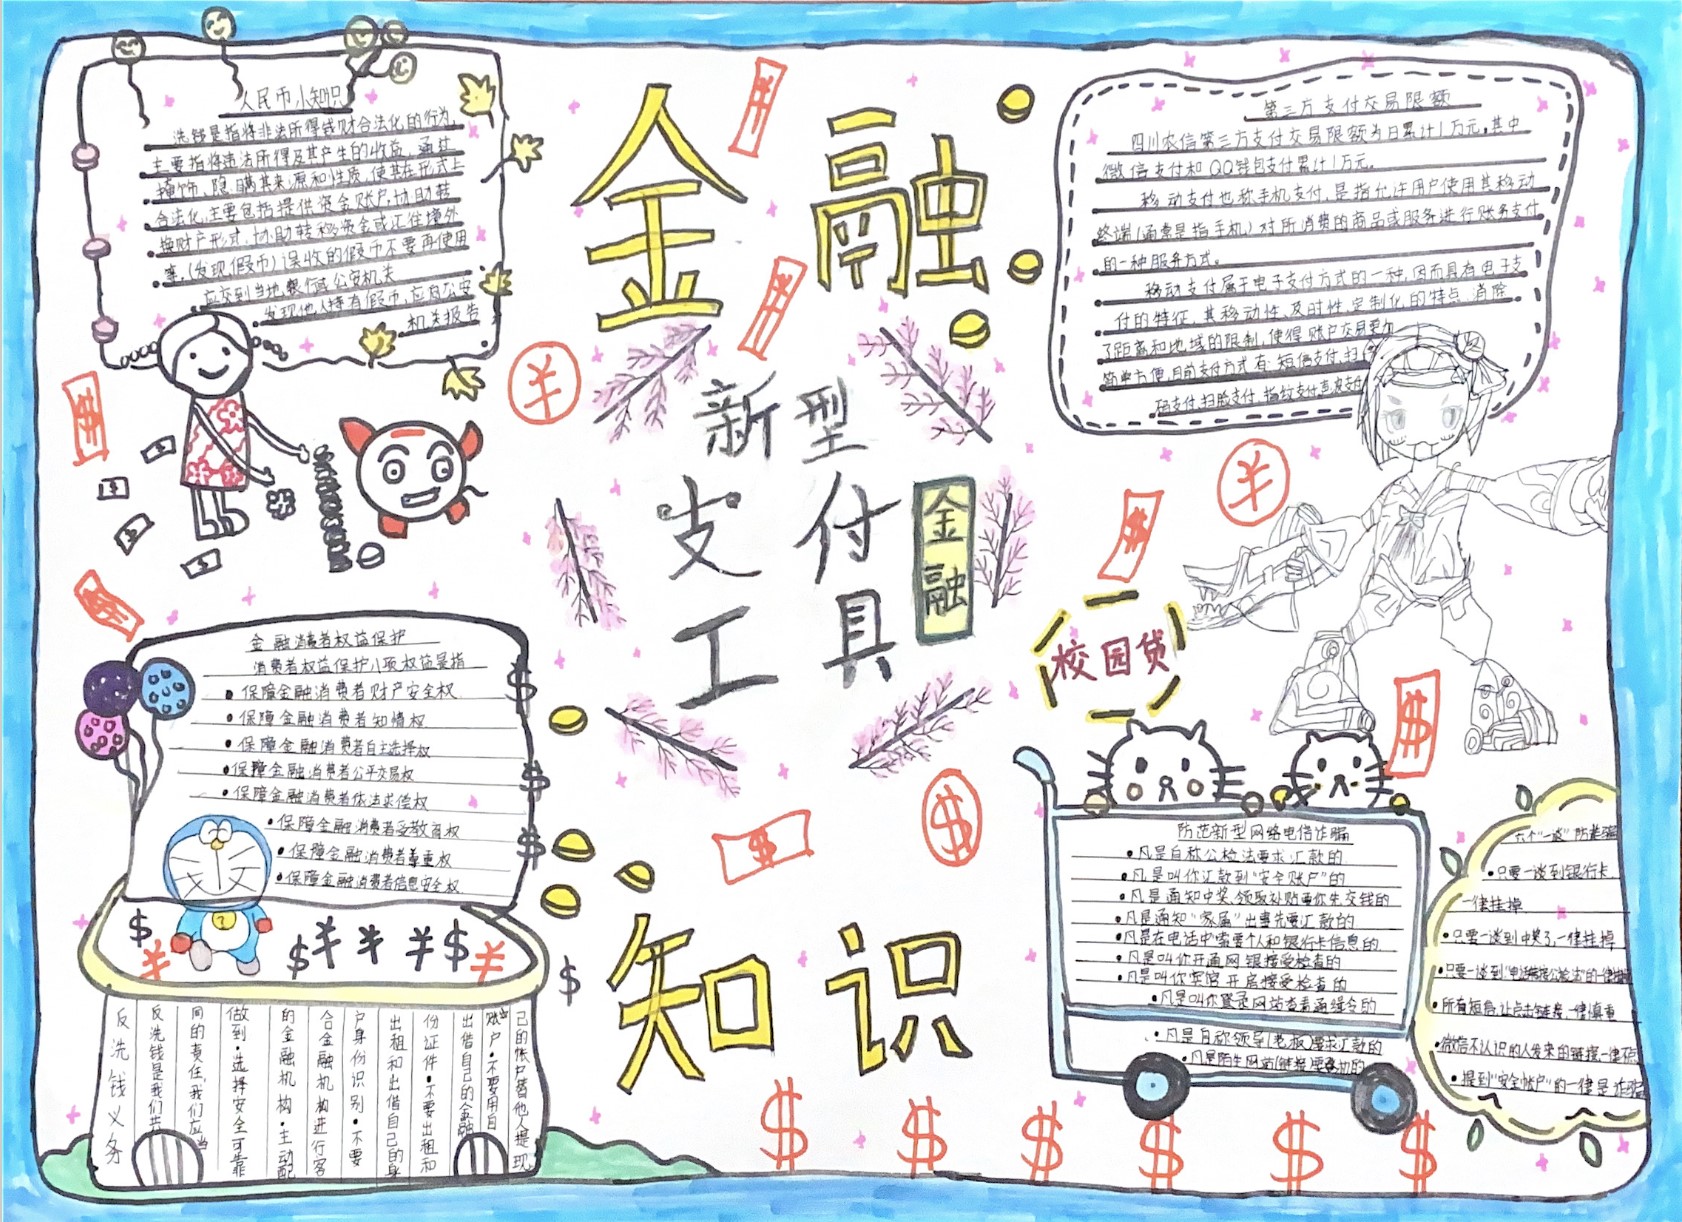 人民币小知识
洗钱是指将非法所得钱财合法化的行为,
主要指将违法所得及其产生的收益,通过
掩饰、隐瞒其来源和性质,使其在形式上
合法化,主要包括提供资金账户,协助转
换财产形式,协助转移资金或汇往境外
等,(发现假币)误收的假币不要再使用
应交到当地银行或公安机关
发现他人持有假币,应向公安
机关报告
金融
知识
新型
支付
工具
金融
第三方支付交易限额
四川农信第三方支付交易限额为日累计1万元,其中
微信支付和QQ钱包支付累计1万元。
移动支付也称手机支付,是指允许用户使用其移动
终端(通常是指手机)对所消费的商品或服务进行账务支付
的一种服务方式。
移动支付属于电子支付方式的一种,因而具有电子支
付的特征,其移动性、及时性、定制化的特点,消除
了距离和地域的限制,使得账户交易更加
简单方便,目前支付方式有:短信支付,扫
码支付,扫脸支付,指纹支付,声波支付
校园贷
金融消费者权益保护
消费者权益保护八项权益是指
•保障金融消费者财产安全权
•保障金融消费者知情权
•保障金融消费者自主选择权
•保障金融消费者公平交易权
•保障金融消费者依法求偿权
•保障金融消费者受教育权
•保障金融消费者尊重权
•保障金融消费者信息安全权
反洗钱义务
反洗钱是我们共
同的责任,我们应当
做到•选择安全可靠
的金融机构•主动配
合金融机构进行客
户身份识别•不要
出租和出借自己的身
份证件•不要出租和
出借自己的金融
账户•不要用自
己的帐户替他人提现
防范新型网络电信诈骗
•凡是自称公检法要求汇款的
•凡是叫你汇款到"安全账户"的
•凡是通知中奖、领取补贴要你先交钱的
•凡是通知"家属"出事先要汇款的
•凡是在电话中索要个人和银行卡信息的
•凡是叫你开通网银接受检查的
•凡是叫你宾馆开房接受检查的
•凡是叫你登录网站查看通缉令的
•凡是自称领导(老板)要求汇款的
•凡是陌生网站(链接)要登记的
六个"一谈"防诈骗
•只要一谈到银行卡
一律挂掉
•只要一谈到中奖了,一律挂掉
•只要一谈到"电话转接公检法"的一律挂掉
•所有短信,让点击链接,一律慎重
•微信不认识的人发来的链接一律不点
•提到"安全帐户"的一律是诈骗